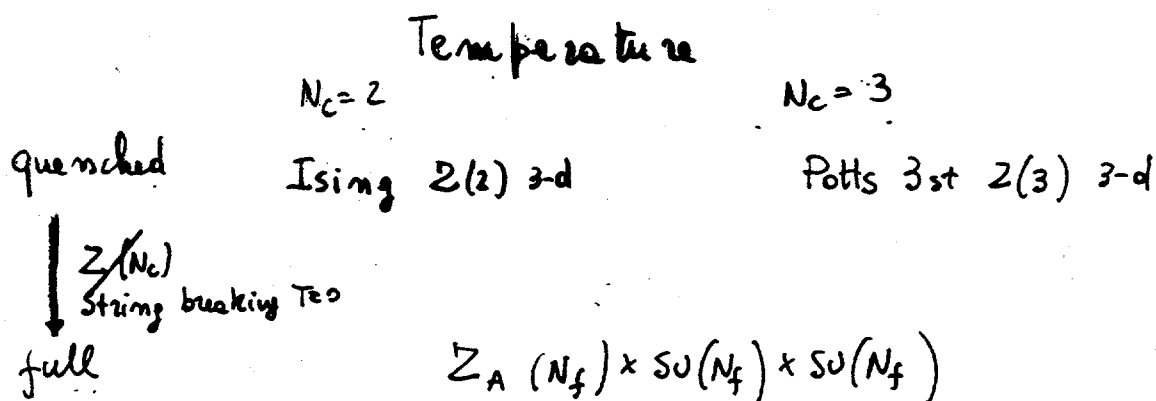 Temperature
Nc=2 Nc=3
quenched Ising Z(2) 3-d Potts 3st Z(3) 3-d
Z(Nc)
String breaking T=0
full Z_A (N_f) x SU(N_f) x SU(N_f)